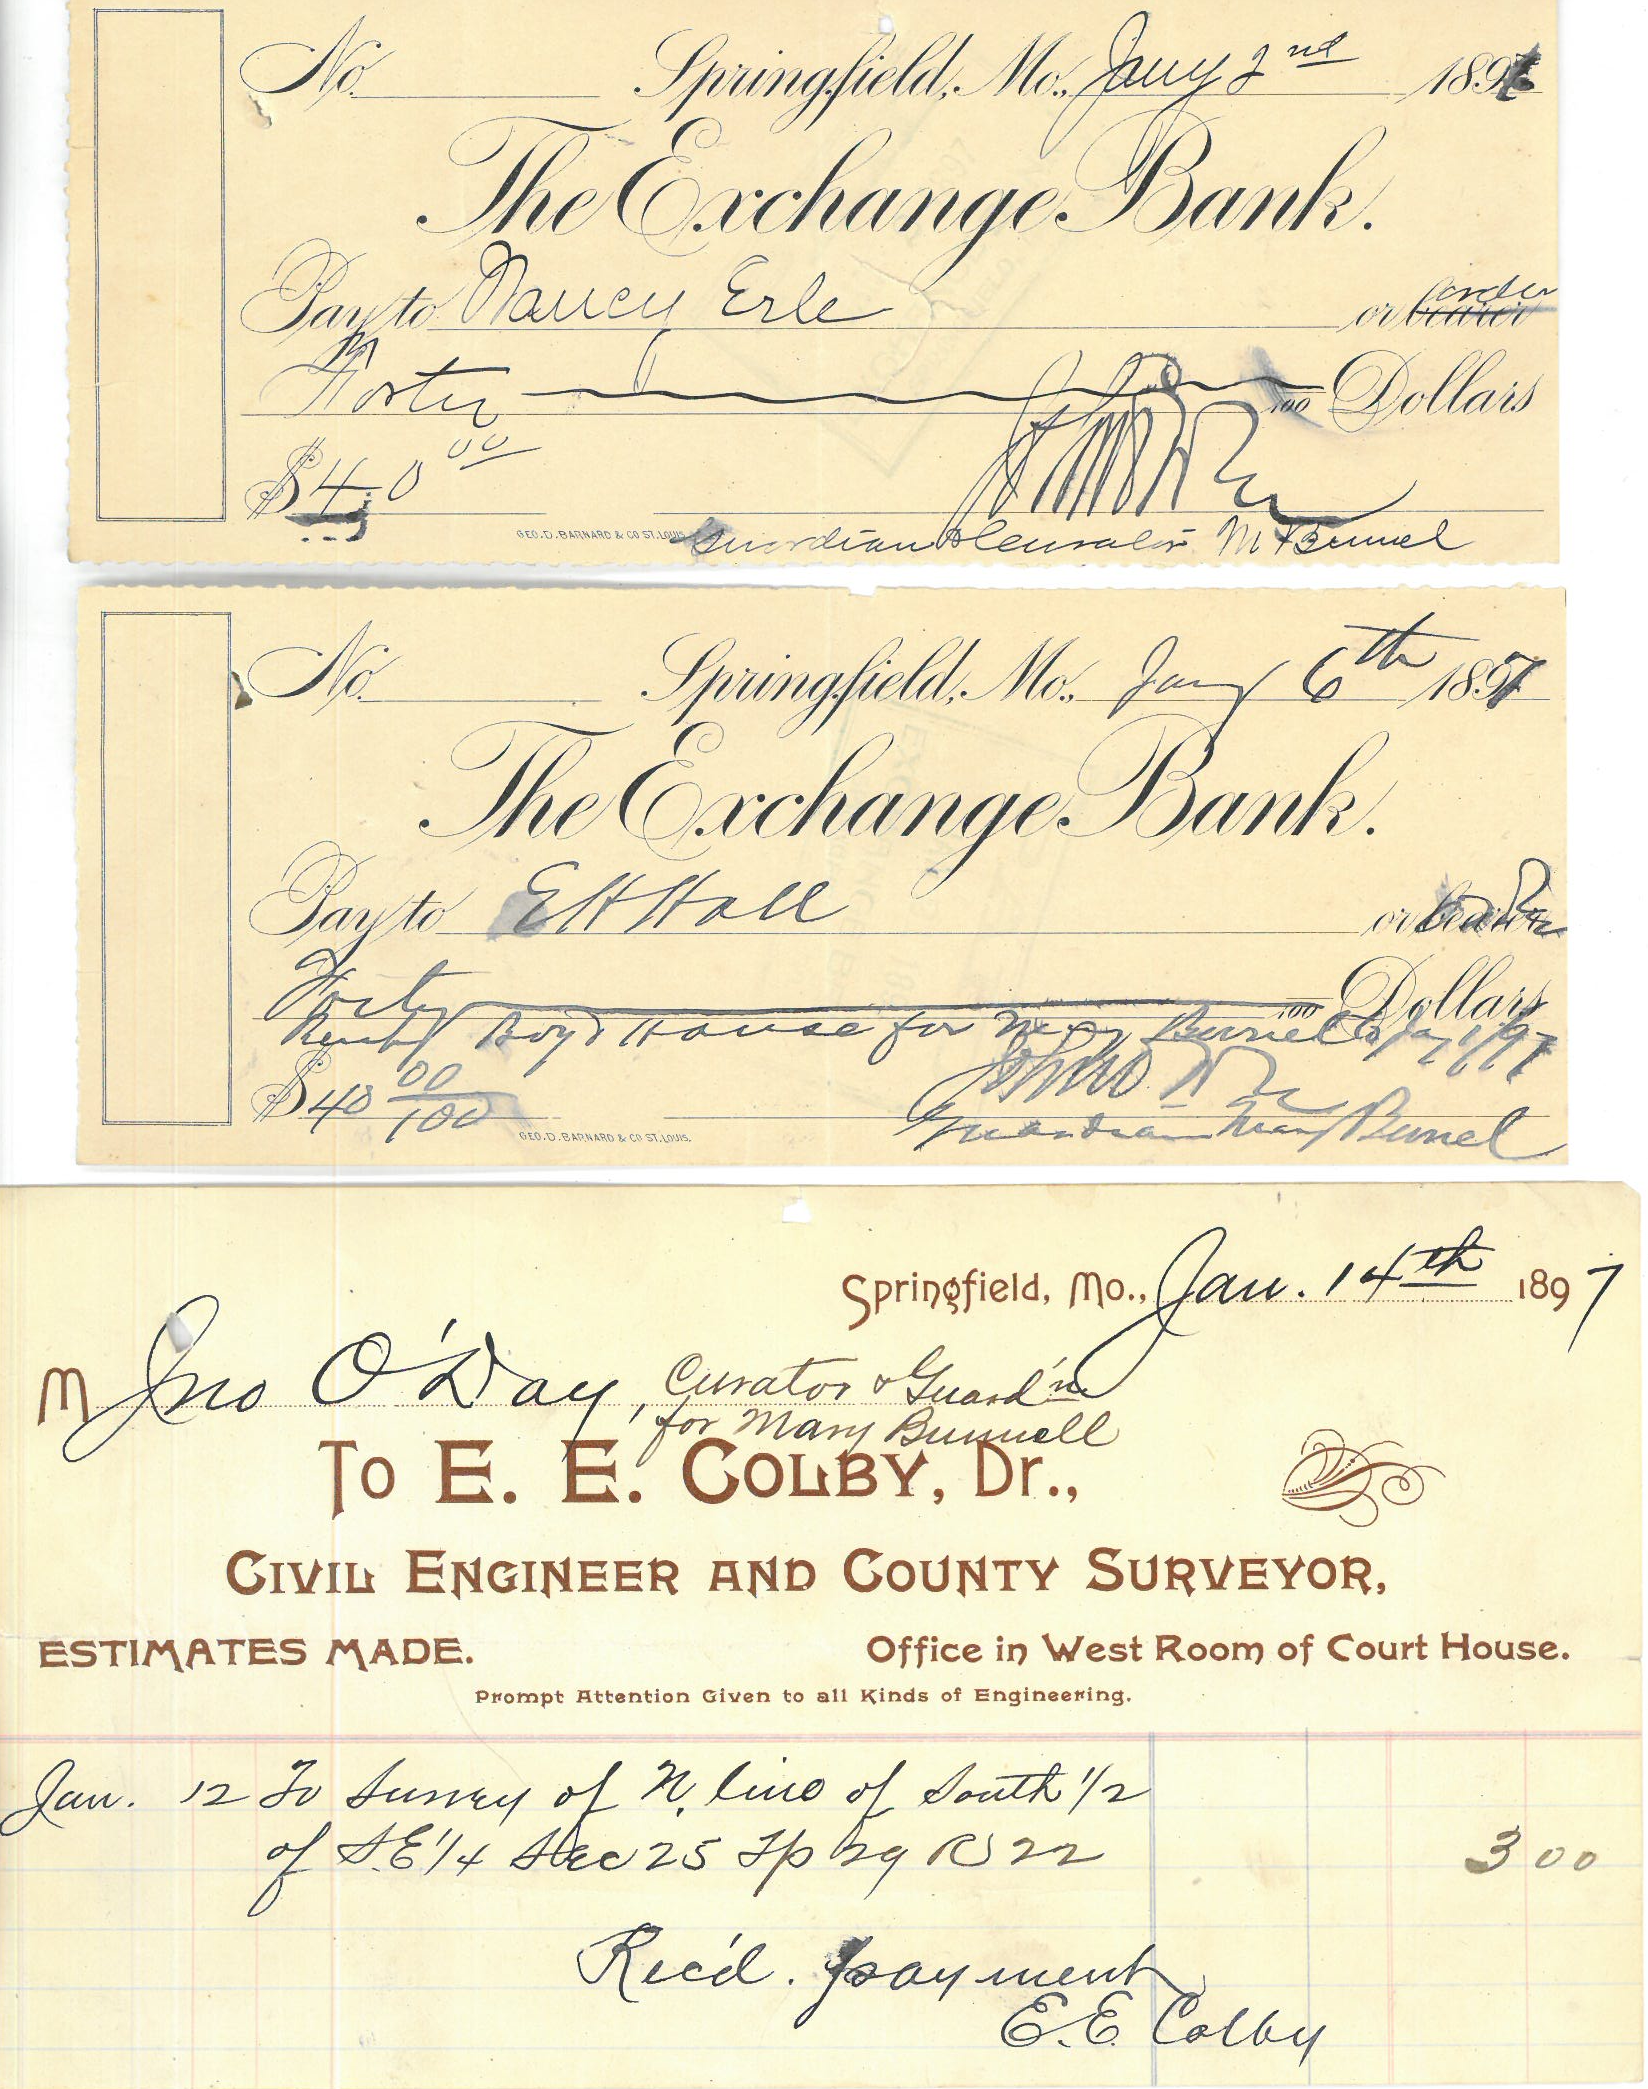 No. Springfield, Mo., Jany 2nd 1897
The Exchange Bank.
Pay to Nancy Erle or bearer order
Forty /100 Dollars
$40 00
GEO. D. BARNARD & CO ST. LOUIS.
Guardian & Curator M Bunnel
No. Springfield, Mo., Jany 6th 1897
The Exchange Bank.
Pay to E H Hall or bearer
Forty /100 Dollars
Rent of Boyd House for Mary Bunnel to Jany 1/97
$40 00/100
GEO. D. BARNARD & CO ST. LOUIS.
Guardian Mary Bunnel
Springfield, Mo., Jan. 14th 1897
M Jno O'Day, Curator & Guard'n
for Mary Bunnell
To E. E. COLBY, Dr.,
CIVIL ENGINEER AND COUNTY SURVEYOR,
ESTIMATES MADE. Office in West Room of Court House.
Prompt Attention Given to all Kinds of Engineering.
Jan. 12 To Survey of N. line of South 1/2
of S.E 1/4 Sec 25 Tp 29 R 22 3 00
Rec'd. payment
E. E. Colby